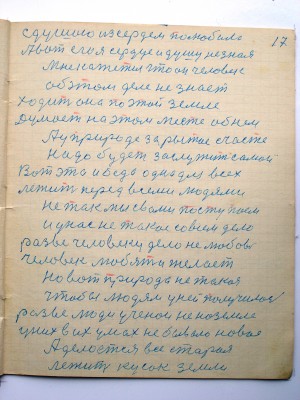 17.
с душою и сердем полюбила
А вот его я сердце и душу не зная
Мне кажется что ои человек
об этом деле не знает
ходит она по этой земле
думает на этом месте об нем
А у природе зарытое счасте
Надо будет заслужит самой
Вот это и беда одна для всех
лежить перед всеми людями
не так мы с вами поступаем
и у нас не такое совсем дело
разве человеку дело не любовь
человек любят и желает
Но вот природа не такая
чтобы людям у ней получилось
разве люди ученои не поземле
у них в их умах не бывало новая
А делостся все старая
лежить кусок земли